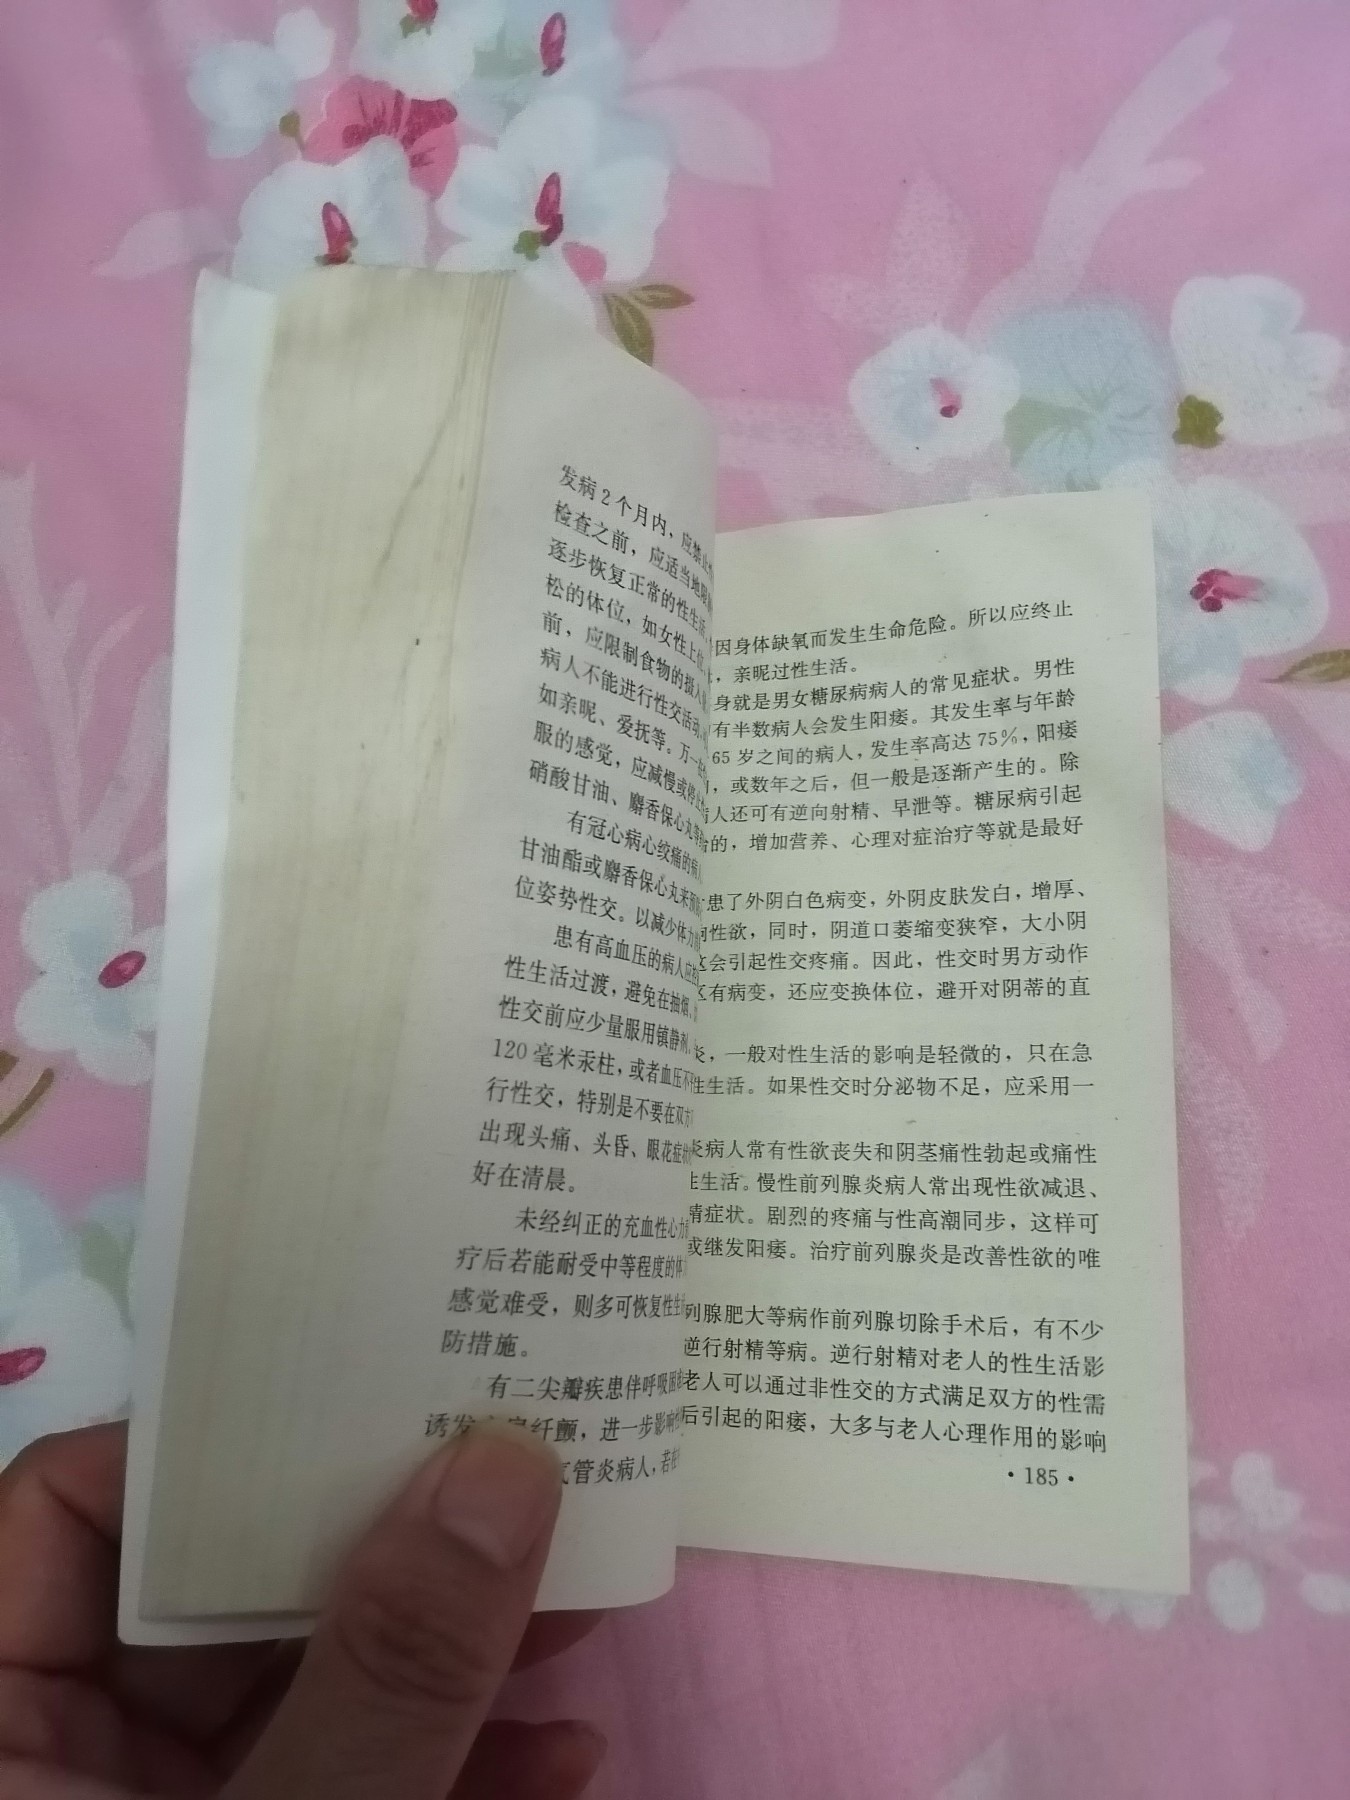 发病2个月内，应禁止性
检查之前，应适当地限制
逐步恢复正常的性生活，
松的体位，如女性上位，
前，应限制食物的摄入量
病人不能进行性交活动，
如亲昵、爱抚等。万一
服的感觉，应减慢或停止
硝酸甘油、麝香保心丸等
有冠心病心绞痛的病人
甘油酯或麝香保心丸来预
位姿势性交。以减少体力
患有高血压的病人应
性生活过渡，避免在抽烟、
性交前应少量服用镇静剂，
120毫米汞柱，或者血压不
行性交，特别是不要在双方
出现头痛、头昏、眼花症状
好在清晨。
未经纠正的充血性心力
疗后若能耐受中等程度的体
感觉难受，则多可恢复性生
防措施。
有二尖瓣疾患伴呼吸困难
诱发纤颤，进一步影响
气管炎病人，若在
因身体缺氧而发生生命危险。所以应终止
，亲昵过性生活。
身就是男女糖尿病病人的常见症状。男性
有半数病人会发生阳痿。其发生率与年龄
65岁之间的病人，发生率高达75%，阳痿
，或数年之后，但一般是逐渐产生的。除
人还可有逆向射精、早泄等。糖尿病引起
的，增加营养、心理对症治疗等就是最好
患了外阴白色病变，外阴皮肤发白，增厚、
性欲，同时，阴道口萎缩变狭窄，大小阴
会引起性交疼痛。因此，性交时男方动作
区有病变，还应变换体位，避开对阴蒂的直
炎，一般对性生活的影响是轻微的，只在急
性生活。如果性交时分泌物不足，应采用一
炎病人常有性欲丧失和阴茎痛性勃起或痛性
性生活。慢性前列腺炎病人常出现性欲减退、
精症状。剧烈的疼痛与性高潮同步，这样可
或继发阳痿。治疗前列腺炎是改善性欲的唯
列腺肥大等病作前列腺切除手术后，有不少
逆行射精等病。逆行射精对老人的性生活影
老人可以通过非性交的方式满足双方的性需
后引起的阳痿，大多与老人心理作用的影响
·185·